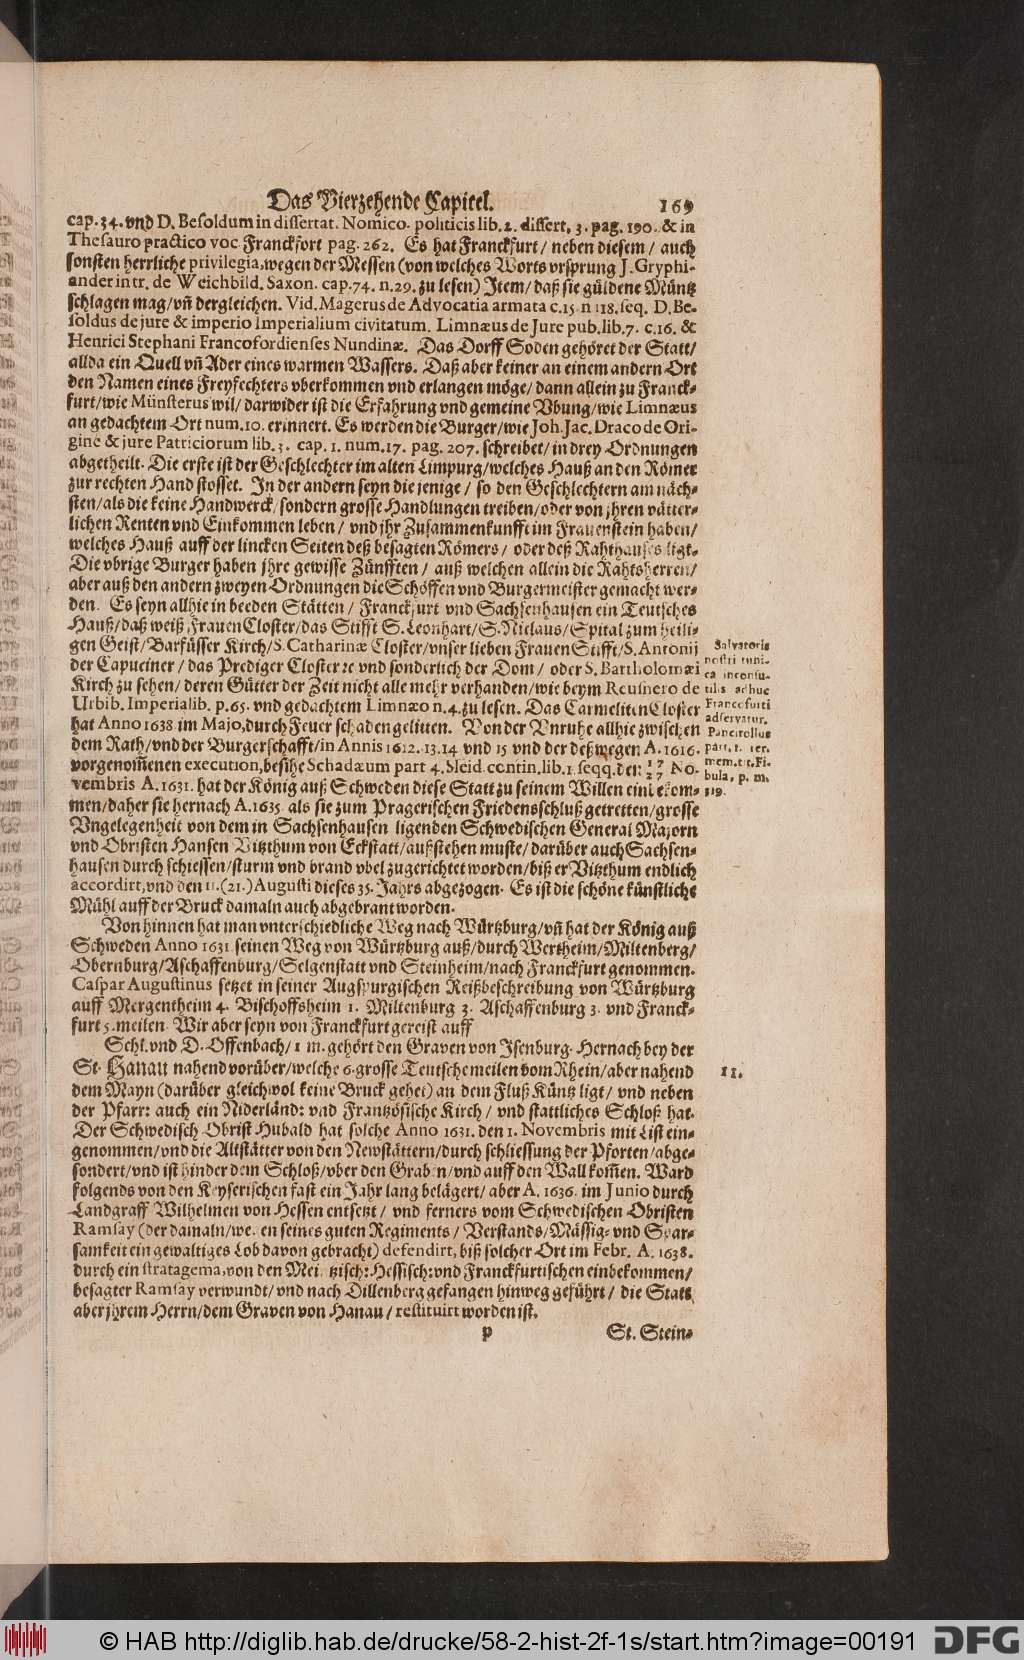 Das Vierzehende Capitel. 169
cap. 34. vnd D. Besoldum in dissertat. Nomico. politicis lib. 2. dissert. 3. pag. 190. & in
Thesauro practico voc Franckfort pag. 262. Es hat Franckfurt / neben diesem / auch
sonsten herrliche privilegia, wegen der Messen (von welches Worts vrsprung J. Gryphi-
ander in tr. de Weichbild. Saxon. cap. 74. n. 29. zu lesen) Item / daß sie güldene Müntz
schlagen mag / vñ dergleichen. Vid. Magerus de Advocatia armata c. 15. n 118. seq. D. Be-
soldus de jure & imperio Imperialium civitatum. Limnæus de Jure pub. lib. 7. c. 16. &
Henrici Stephani Francofordienses Nundinæ. Das Dorff Soden gehöret der Statt /
allda ein Quell vñ Ader eines warmen Wassers. Daß aber keiner an einem andern Ort
den Namen eines Freyfechters vberkommen vnd erlangen möge / dann allein zu Franck-
furt / wie Münsterus wil / darwider ist die Erfahrung vnd gemeine Vbung / wie Limnæus
an gedachtem Ort num. 10. erinnert. Es werden die Burger / wie Joh. Jac. Draco de Ori-
gine & jure Patriciorum lib. 3. cap. 1. num. 17. pag. 207. schreibet / in drey Ordnungen
abgetheilt. Die erste ist der Geschlechter im alten Limpurg / welches Hauß an den Römer
zur rechten Hand stosset. In der andern seyn die jenige / so den Geschlechtern am näch-
sten / als die keine Handwerck / sondern grosse Handlungen treiben / oder von jhren vätter-
lichen Renten vnd Einkommen leben / vnd jhr Zusammenkunfft im Frauenstein haben /
welches Hauß auff der lincken Seiten deß besagten Römers / oder deß Rahthauses ligt.
Die vbrige Burger haben jhre gewisse Zünfften / auß welchen allein die Rahtsherren /
aber auß den andern zweyen Ordnungen die Schöffen vnd Burgermeister gemacht wer-
den. Es seyn allhie in beeden Stätten / Franckfurt vnd Sachsenhausen ein Teutsches
Hauß / daß weiß Frauen Closter / das Stifft S. Leonhart / S. Niclaus / Spital zum heili-
gen Geist / Barfüsser Kirch / S. Catharinæ Closter / vnser lieben Frauen Stifft / S. Antonij
der Capuciner / das Prediger Closter ꝛc vnd sonderlich der Dom / oder S. Bartholomæi
Kirch zu sehen / deren Gütter der Zeit nicht alle mehr verhanden / wie beym Reusnero de
Urbib. Imperialib. p. 65. vnd gedachtem Limnæo n. 4. zu lesen. Das Carmeliten Closter
hat Anno 1638 im Majo, durch Feuer schaden gelitten. Von der Vnruhe allhie zwischen
dem Rath / vnd der Burgerschafft / in Annis 1612. 13. 14 vnd 15 vnd der deßwegen A. 1616.
vorgenom̃enen execution, besihe Schadæum part 4. Sleid. contin. lib. 1. seqq. den 17/27 No-
vembris A. 1631. hat der König auß Schweden diese Statt zu seinem Willen einbekom-
men / daher sie hernach A. 1635. als sie zum Pragerischen Friedensschluß getretten / grosse
Vngelegenheit von dem in Sachsenhausen ligenden Schwedischen General Majorn
vnd Obristen Hansen Vitzthum von Eckstatt / außstehen muste / darüber auch Sachsen-
hausen durch schiessen / sturm vnd brand vbel zugerichtet worden / biß er Vitzthum endlich
accordirt, vnd den 11. (21.) Augusti dieses 35. Jahrs abgezogen. Es ist die schöne künstliche
Mühl auff der Bruck damaln auch abgebrant worden.
Salvatoris
nostri tuni-
ca inconsu-
tilis adhuc
Francofurti
adservatur.
Pancirollus
part. 1. rer.
mem. tit. Fi-
bula, p. m.
319.
Von hinnen hat man vnterschiedliche Weg nach Würtzburg / vñ hat der König auß
Schweden Anno 1631. seinen Weg von Würtzburg auß / durch Wertheim / Miltenberg /
Obernburg / Aschaffenburg / Selgenstatt vnd Steinheim / nach Franckfurt genommen.
Caspar Augustinus setzet in seiner Augspurgischen Reißbeschreibung von Würtzburg
auff Mergentheim 4. Bischoffsheim 1. Miltenburg 3. Aschaffenburg 3. vnd Franck-
furt 5. meilen. Wir aber seyn von Franckfurt gereist auff
Schl. vnd D. Offenbach / 1 m. gehört den Graven von Isenburg. Hernach bey der
St. Hanau nahend vorüber / welche 6. grosse Teutsche meilen vom Rhein / aber nahend
11.
dem Mayn (darüber gleichwol keine Bruck gehet) an dem Fluß Küntz ligt / vnd neben
der Pfarr: auch ein Niderländ: vnd Frantzösische Kirch / vnd stattliches Schloß hat.
Der Schwedisch Obrist Hubald hat solche Anno 1631. den 1. Novembris mit List ein-
genommen / vnd die Altstätter von den Newstättern / durch schliessung der Pforten / abge-
sondert / vnd ist hinder dem Schloß / vber den Graben / vnd auff den Wall kom̃en. Ward
folgends von den Keyserischen fast ein Jahr lang belägert / aber A. 1636. im Junio durch
Landgraff Wilhelmen von Hessen entsetzt / vnd ferners vom Schwedischen Obristen
Ramsay (der damaln / wegen seines guten Regiments / Verstands / Mässig- vnd Spar-
samkeit ein gewaltiges Lob davon gebracht) defendirt, biß solcher Ort im Febr. A. 1638.
durch ein stratagema, von den Meintzisch: Hessisch: vnd Franckfurtischen einbekommen /
besagter Ramsay verwundt / vnd nach Dillenberg gefangen hinweg geführt / die Statt
aber jhrem Herrn / dem Graven von Hanau / restituirt worden ist.
P St. Stein-
© HAB http://diglib.hab.de/drucke/58-2-hist-2f-1s/start.htm?image=00191 DFG